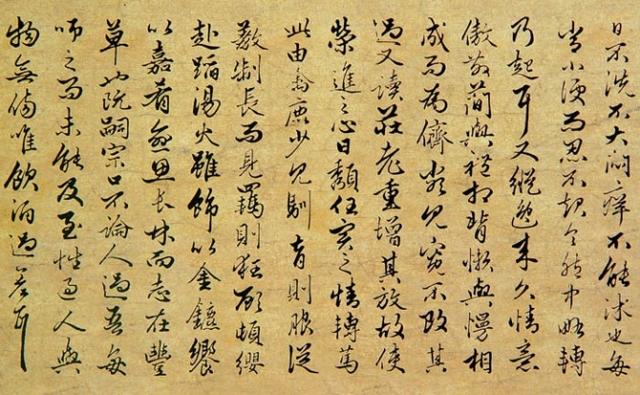 日不洗不大悶癢不能沐也每
常小便而忍不起令胞中略轉
乃起耳又縱逸來久情意
傲散簡與禮相背懶與慢相
成而為儕類見寬不攻其
過又讀莊老重增其放故使
榮進之心日頹任實之情轉篤
此由禽鹿少見馴育則服從
教制長而見羈則狂顧頓纓
赴蹈湯火雖飾以金鑣饗
以嘉肴愈思長林而志在豐
草也阮嗣宗口不論人過吾每
師之而未能及至性過人與
物無傷唯飲酒過差耳